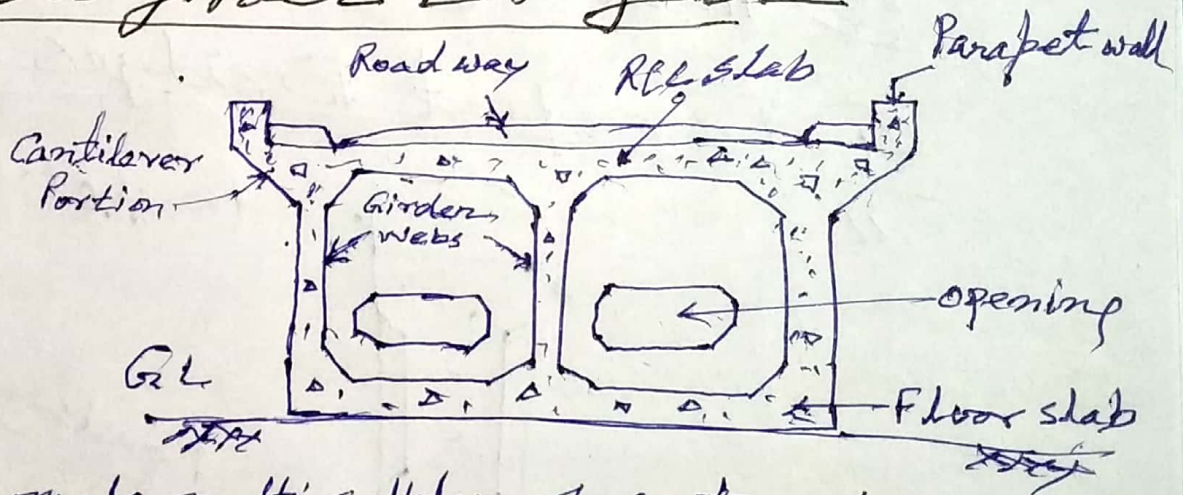 Road way
RCC slab
Parapet wall
Cantilever
Portion
Girder
webs
opening
GL
Floor slab